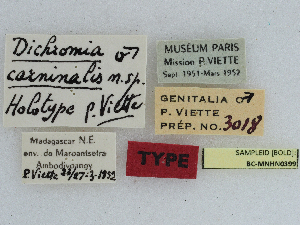 Dichromia ♂
carninalis n.sp.
Holotype P. Viette
MUSÉUM PARIS
Mission P. VIETTE
Sept. 1951-Mars 1952
GENITALIA ♂
P. VIETTE
PRÉP. NO. 3018
Madagascar N.E.
env. de Maroantsetra
Ambodivoangy
P. Viette 23/27-3-1952
TYPE
SAMPLEID [BOLD]:
BC-MNHN0399